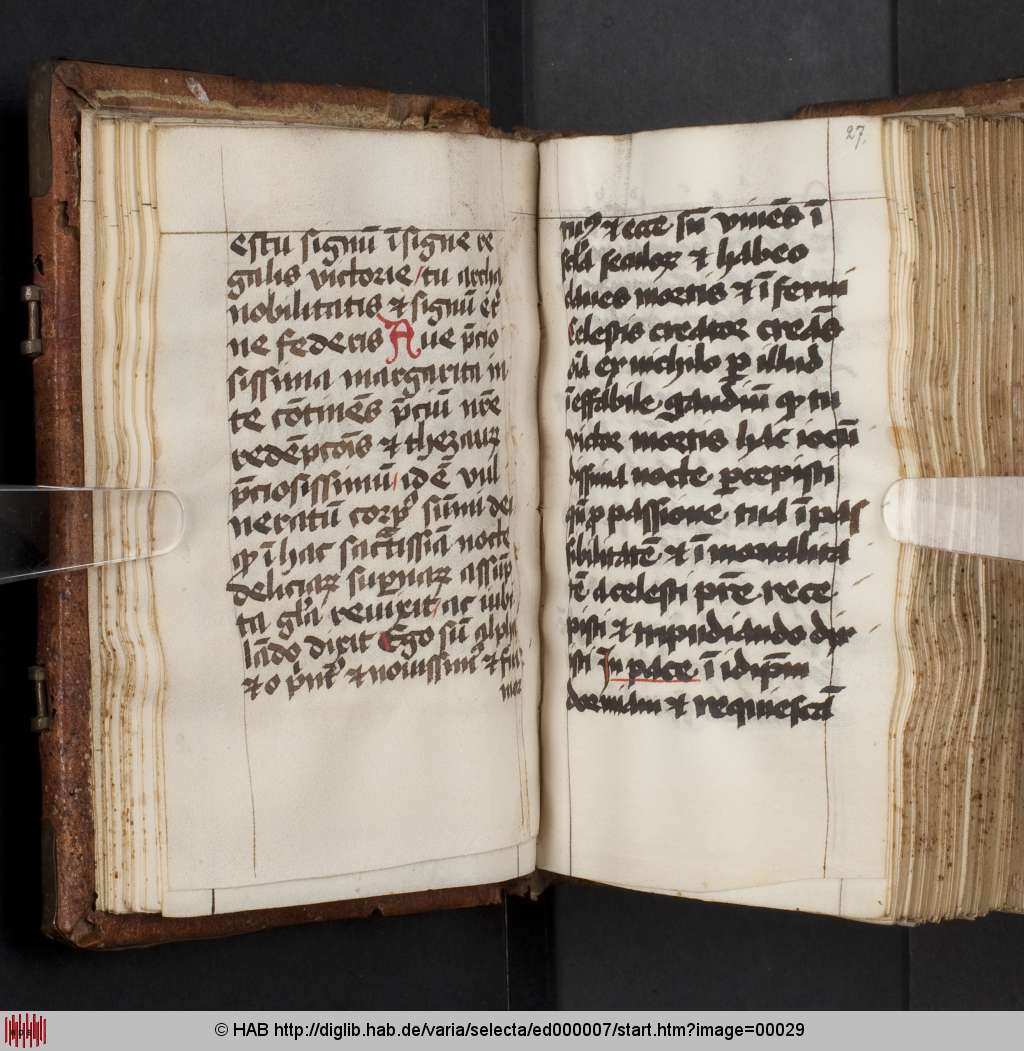 estu signū īsigne re
galis victorie / tu archa
nobilitatis & signū et̄
ne federis Aue p̄cio
sissima margarita in
te cōtinēs p̄ciū nr̄e
redēptōis & thezaur
p̄ciosissimū / idē vul
neratū corp⁹ sūmi dei
qƺ ī hac sac̄tissīa nocte
deliciaꝝ suꝑnaꝝ assūp
ta gl̄ia reuixit / ac iubi
lādo dixit Ego sū alpha
& o p̄mꝰ & nouissimꝰ & fui
mor
27.
tuꝰ & ecce sū viuēs ī
sc̄la seculoꝝ & habeo
claues mortis & īferni
Celestis creator creās
oīa ex nichilo ꝑ illud
īeffabile gaudiū qƺ tu
victor mortis hac iocū
dissima nocte ꝑcepisti
qn̄ p⁹ passione tua īpas
sibilitatē & īmortalita
tē a celesti pr̄e rece
pisti & tripudiando dix
isti In pace ī idip̄m
dormiam & requiescā
© HAB http://diglib.hab.de/varia/selecta/ed000007/start.htm?image=00029